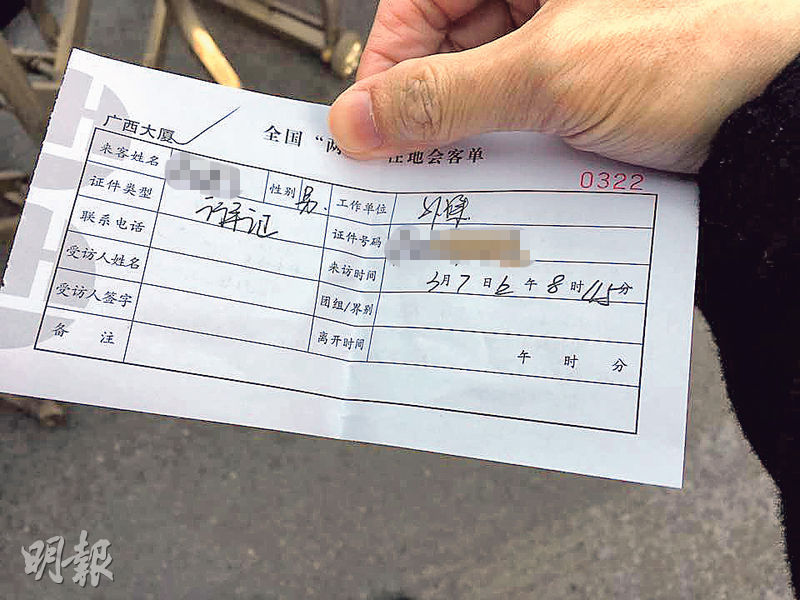 广西大厦
全国“两 驻地会客单
0322
来客姓名 性别 男. 工作单位 外媒
证件类型 证件号码
联系电话 来访时间 3月7日 上午8时45分
受访人姓名 团组/界别
受访人签字 离开时间 午 时 分
备 注
明報